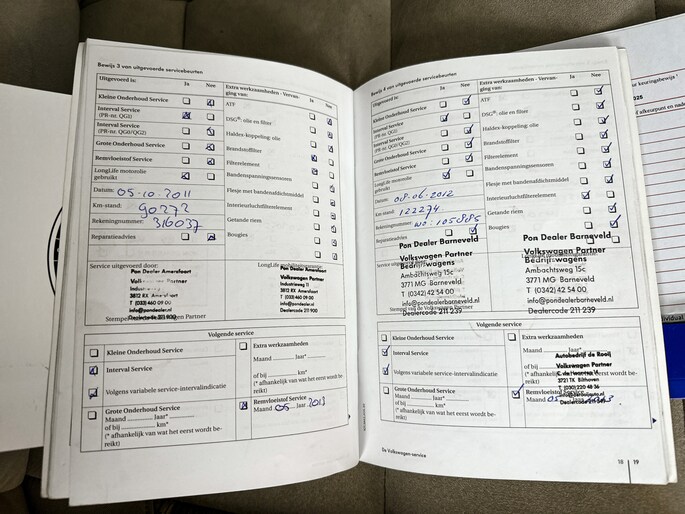 Bewijs 3 van uitgevoerde servicebeurten
Uitgevoerd is:
Ja Nee
Extra werkzaamheden - Vervanging van:
Ja Nee
Kleine Onderhoud Service
Interval Service
(PR-nr. QG1)
Interval Service
(PR-nr. QG0/QG2)
Grote Onderhoud Service
Remvloeistof Service
LongLife motorolie
gebruikt
Datum: 05-10-2011
Km-stand: 90272
Rekeningnummer: 316037
Reparatieadvies
ATF
DSG®: olie en filter
Haldex-koppeling: olie
Brandstoffilter
Filterelement
Bandenspanningssensoren
Flesje met bandenafdichtmiddel
Interieurluchtfilterelement
Getande riem
Bougies
Service uitgevoerd door:
Pon Dealer Amersfoort
Industrieweg 11
3812 RX Amersfoort
T (033) 460 09 00
info@pondealer.nl
Dealercode 211 900
Pon Dealer Amersfoort
Volkswagen Partner
Industrieweg 11
3812 RX Amersfoort
T (033) 460 09 00
info@pondealer.nl
Dealercode 211 900
Volgende service
Kleine Onderhoud Service
Interval Service
Volgens variabele service-intervalindicatie
Grote Onderhoud Service
Maand Jaar*
of bij km*
(* afhankelijk van wat het eerst wordt bereikt)
Extra werkzaamheden
Maand Jaar*
of bij km*
(* afhankelijk van wat het eerst wordt bereikt)
Remvloeistof Service
Maand 05 Jaar 2013
Bewijs 4 van uitgevoerde servicebeurten
Uitgevoerd is:
Ja Nee
Extra werkzaamheden - Vervanging van:
Ja Nee
Kleine Onderhoud Service
Interval Service
(PR-nr. QG1)
Interval Service
(PR-nr. QG0/QG2)
Grote Onderhoud Service
Remvloeistof Service
LongLife motorolie
gebruikt
Datum: 08-06-2012
Km-stand: 122274
Rekeningnummer: wo: 105885
Reparatieadvies
ATF
DSG®: olie en filter
Haldex-koppeling: olie
Brandstoffilter
Filterelement
Bandenspanningssensoren
Flesje met bandenafdichtmiddel
Interieurluchtfilterelement
Getande riem
Bougies
Pon Dealer Barneveld
Volkswagen Partner
Bedrijfswagens
Ambachtsweg 15c
3771 MG Barneveld
T (0342) 42 54 00
info@pondealerbarneveld.nl
Dealercode 211 239
Pon Dealer Barneveld
Volkswagen Partner
Bedrijfswagens
Ambachtsweg 15c
3771 MG Barneveld
T (0342) 42 54 00
info@pondealerbarneveld.nl
Dealercode 211 239
Volgende service
Kleine Onderhoud Service
Interval Service
Volgens variabele service-intervalindicatie
Grote Onderhoud Service
Maand Jaar*
of bij km*
(* afhankelijk van wat het eerst wordt bereikt)
Extra werkzaamheden
Maand Jaar*
of bij
(* afhankelijk van
Autobedrijf de Rooij
Volkswagen Partner
3721 TK Bilthoven
T (030) 220 48 36
Remvloeistof Service
Maand 05
De Volkswagen-service
18 | 19